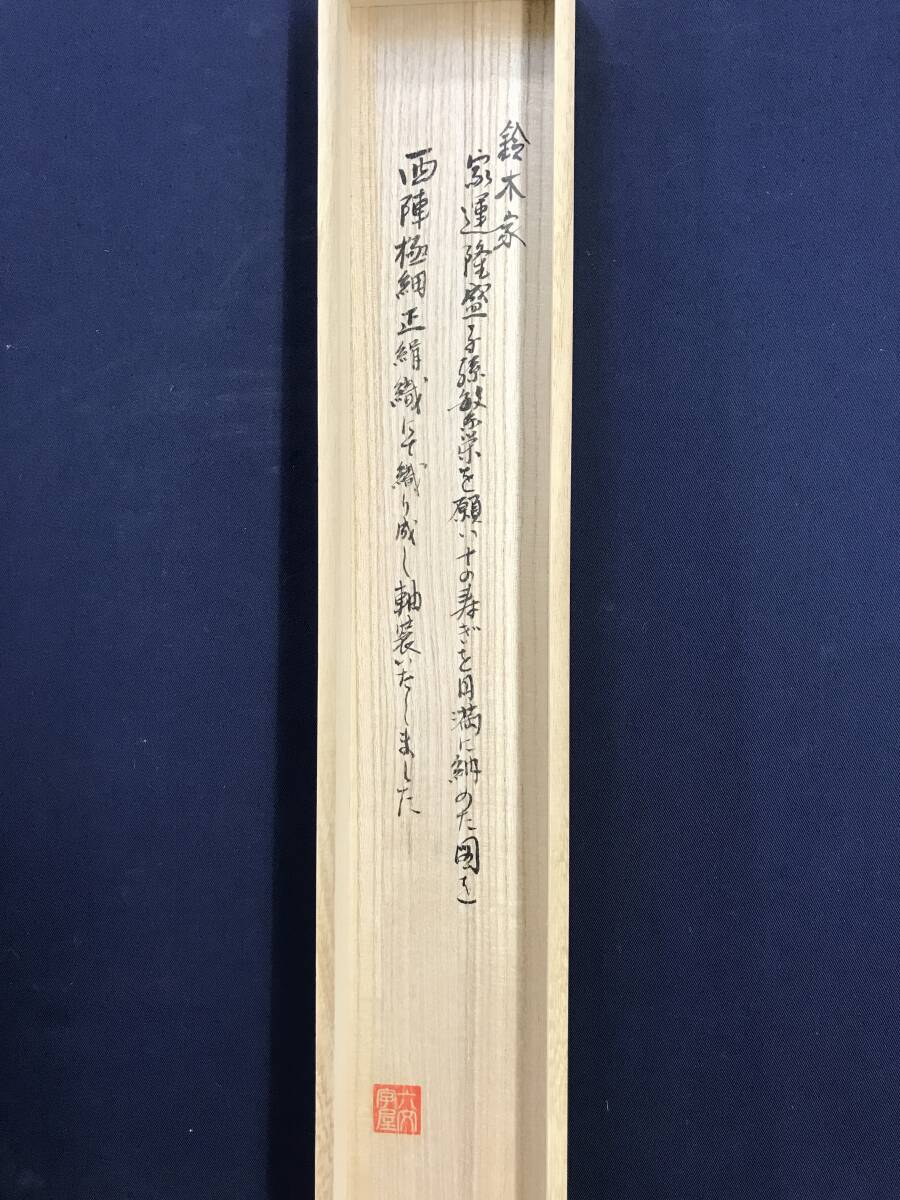 鈴木家
家運隆盛子孫繁栄を願い十の寿ぎを円満に納めた図を
西陣極細正絹織にて織り成し軸装いたしました
六文字屋